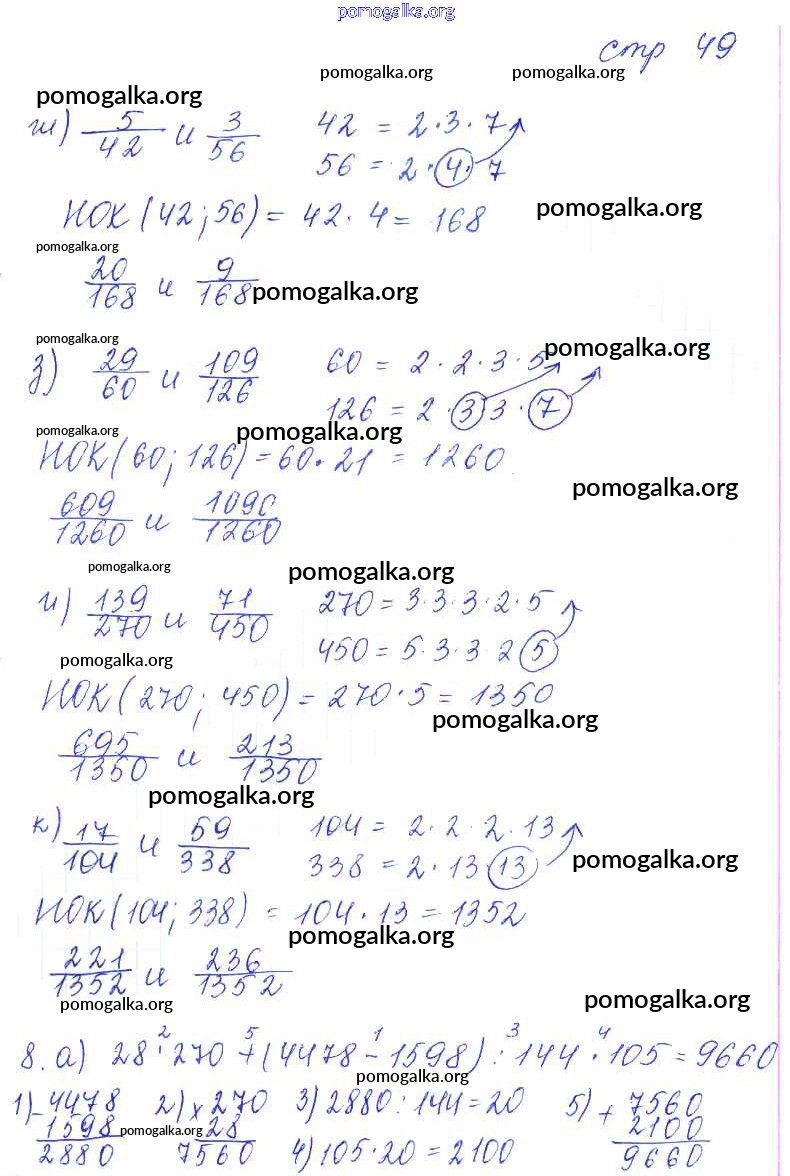 pomogalka.org
стр 49
pomogalka.org pomogalka.org
pomogalka.org
ж) 5/42 и 3/56 42 = 2·3·7
56 = 2·4·7
НОК (42; 56) = 42·4 = 168 pomogalka.org
pomogalka.org
20/168 и 9/168 pomogalka.org
pomogalka.org
з) 29/60 и 109/126 60 = 2·2·3·5 pomogalka.org
126 = 2·3 3·7
pomogalka.org pomogalka.org
НОК (60; 126) = 60·21 = 1260
pomogalka.org
609/1260 и 1090/1260
pomogalka.org pomogalka.org
и) 139/270 и 71/450 270 = 3·3·3·2·5
450 = 5·3·3·2 5
pomogalka.org
НОК (270; 450) = 270·5 = 1350
pomogalka.org
695/1350 и 213/1350
pomogalka.org
к) 17/104 и 59/338 104 = 2·2·2·13
338 = 2·13 13 pomogalka.org
НОК (104; 338) = 104·13 = 1352
pomogalka.org
221/1352 и 236/1352
pomogalka.org pomogalka.org
2 5 1 3 4
8. а) 28·270 + (4478 - 1598) : 144·105 = 9660
pomogalka.org
1) - 4478 2) x 270 3) 2880 : 144 = 20 5) + 7560
1598 pomogalka.org 28 2100
2880 7560 4) 105·20 = 2100 9660